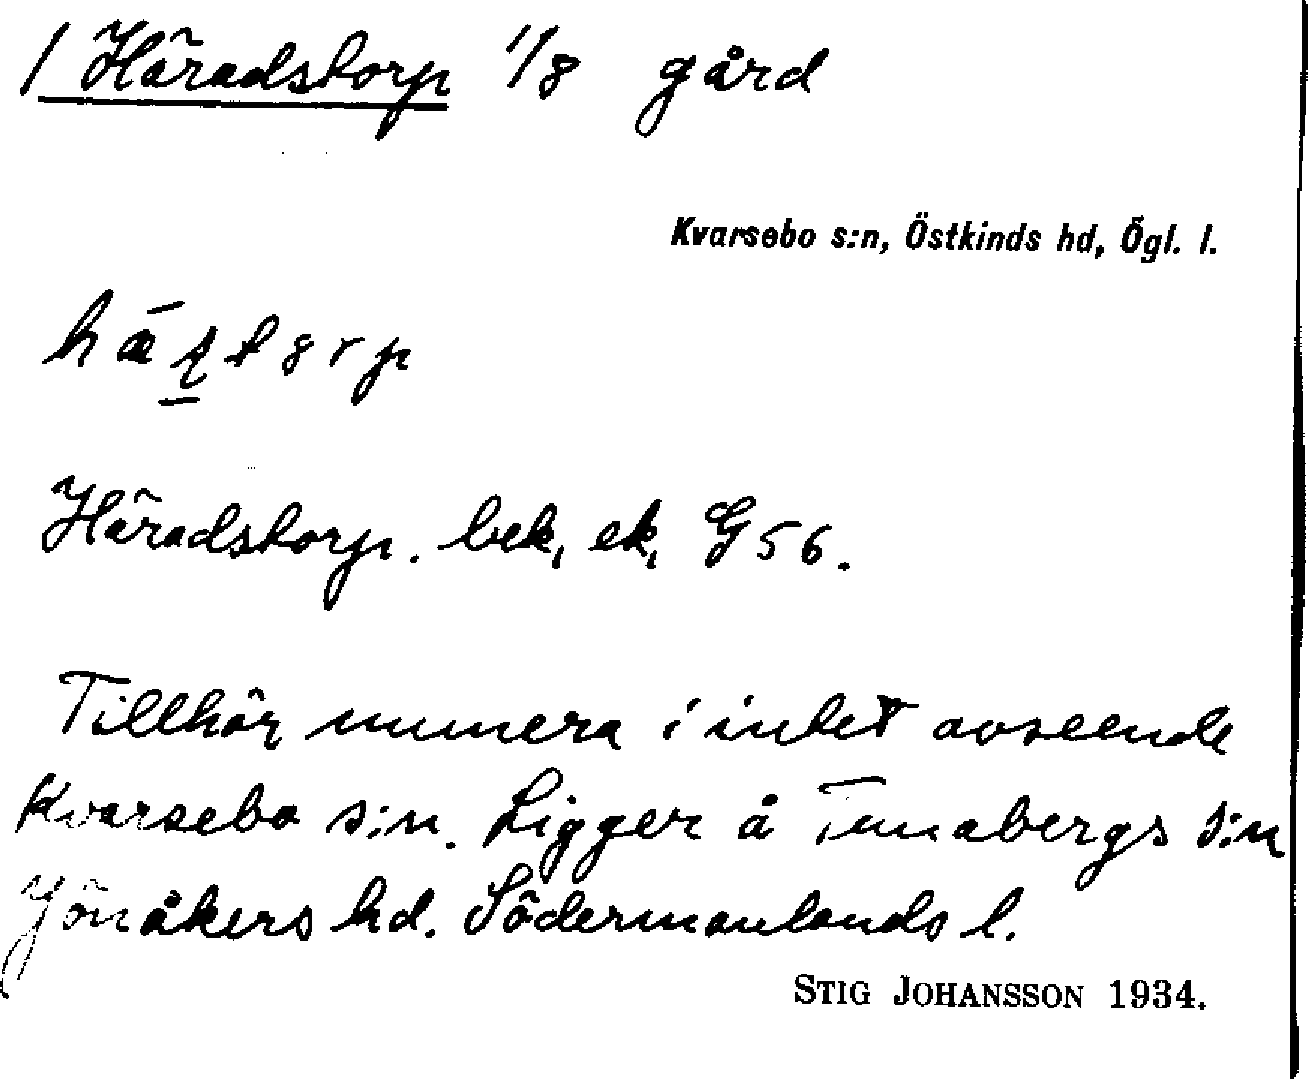 / Häradstorp 1/8 gård
Kvarsebo s:n, Östkinds hd, Ögl. l.
Häradstorp. bek, ek, G 56.
Tillhör numera i intet avseende
Kvarsebo s:n. Ligger å Tunabergs s:n
Jönåkers hd. Södermanlands l.
STIG JOHANSSON 1934.